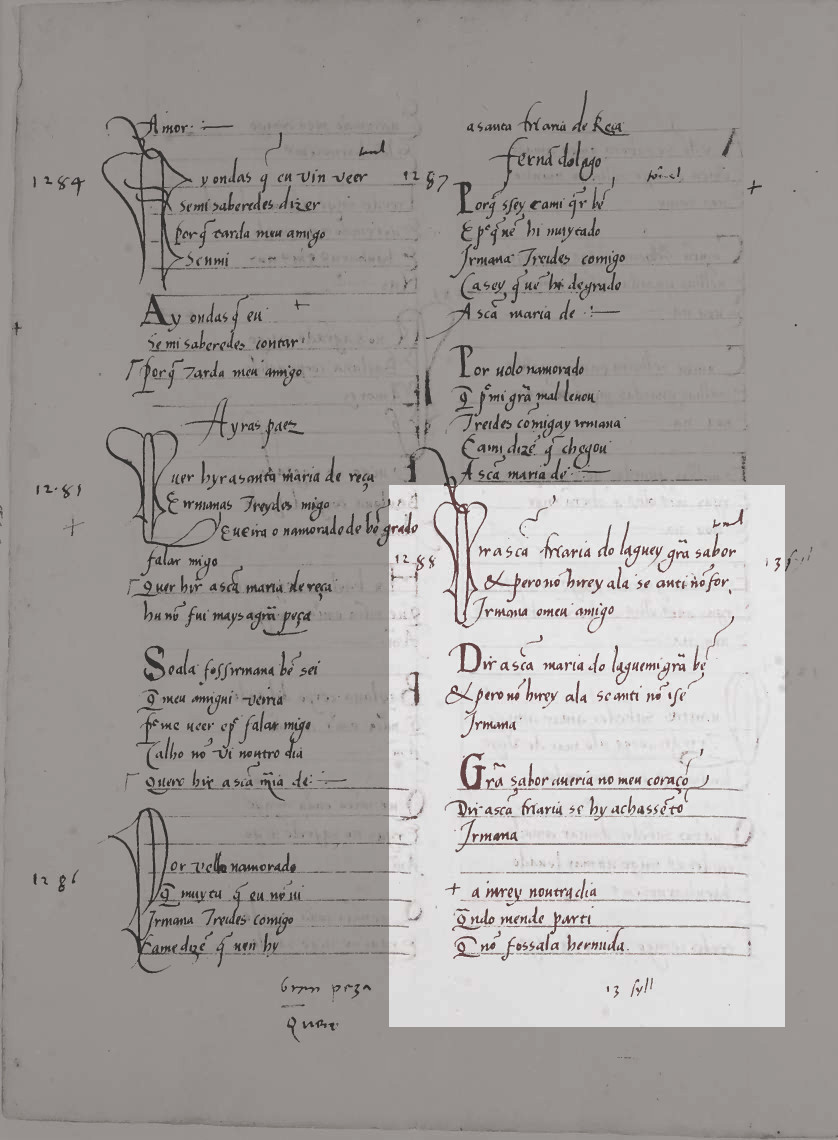 Amor:
1284
tornel
Ay ondas q̄ eu vin veer
se mi saberedes dizer
porq̄ tarda meu amigo
Sen mi
Ay ondas q̄ eu
se mi saberedes contar
porq̄ tarda meu amigo
Ayras paez
1285
Quer hyr a santa maria de reça
E irmanas Treydes migo
E veira o namorado de bō grado
falar migo
Quer hir a scā maria de reça
hu nō fui mays a grā peça
Se ala fossirmana bē sei
q̄ meu amigui veiria
por me veer e por falar migo
Calho nō vi noutro dia
Quere hir a scā mīa de:
1286
Por vello namorado
Q̄ muytu q̄ eu nō vi
Irmana Treides comigo
Came dizē q̄ uen hy
Gran peza
Quere
a santa Maria de Reça
Fernā dolago
1287
tornel
Porq̄ ssey cami q̄r bē
E porq̄ uē hi muy cado
Irmana Treides comigo
Ca sey q̄ uē hi de grado
A scā maria de
Por uolo namorado
Q̄ por mi grā mal leuou
Treides comigay yrmana
Cami dizē q̄ chegou
A scā maria de
1288
tornel
D ir a scā Maria do laguey grā sabor
& pero nō hirey ala se anti nō for
Irmana o meu amigo
Dir a scā maria do laguemi grā bē
& pero nō hirey ala se anti nō ue
Irmana
Grā sabor aueria no meu coraçō
Dir a scā Maria se hy achassētō
Irmana
+ a iurey noutra dia
Q̄ndo mende parti
Q̄ nō fossala hermida
13 syll
13 syll